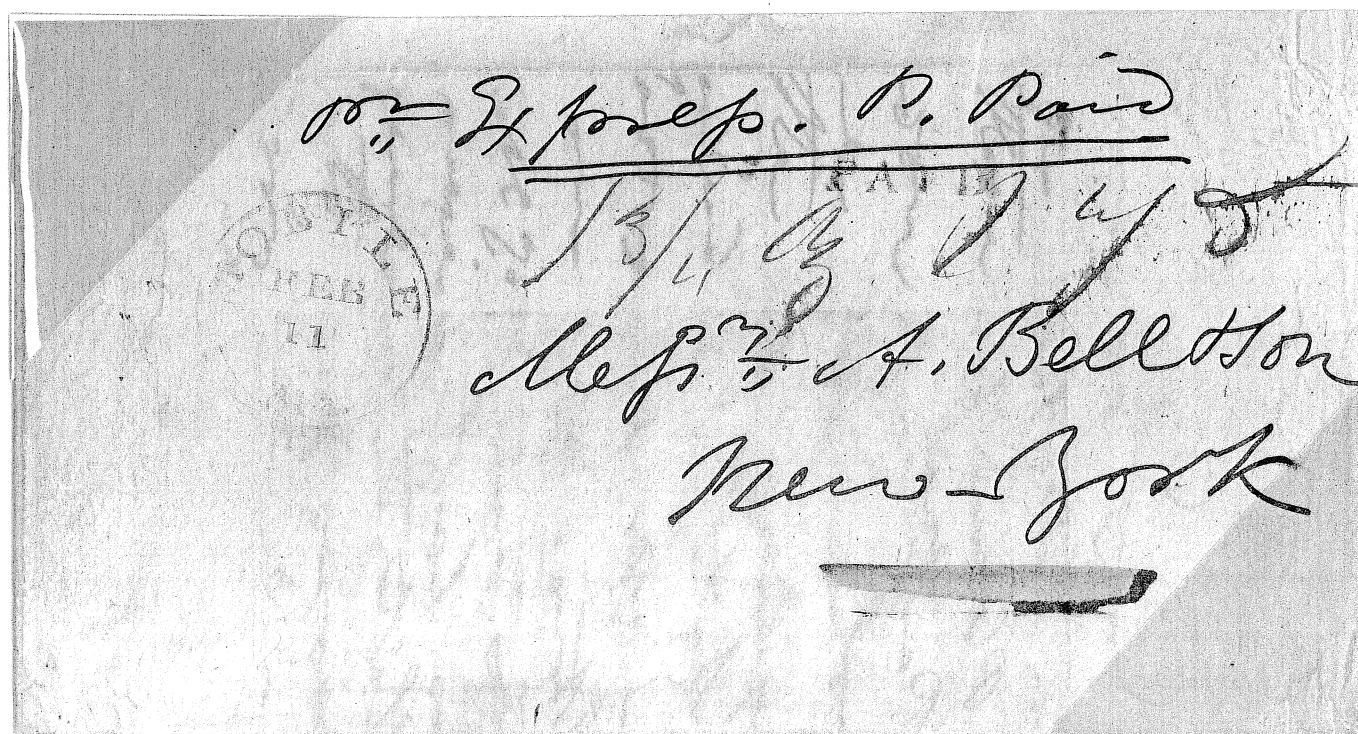 pr Express. P. Paid
PAID
MOBILE
FEB
11
3/4 oz
Messrs A. Bell & Son
New-York